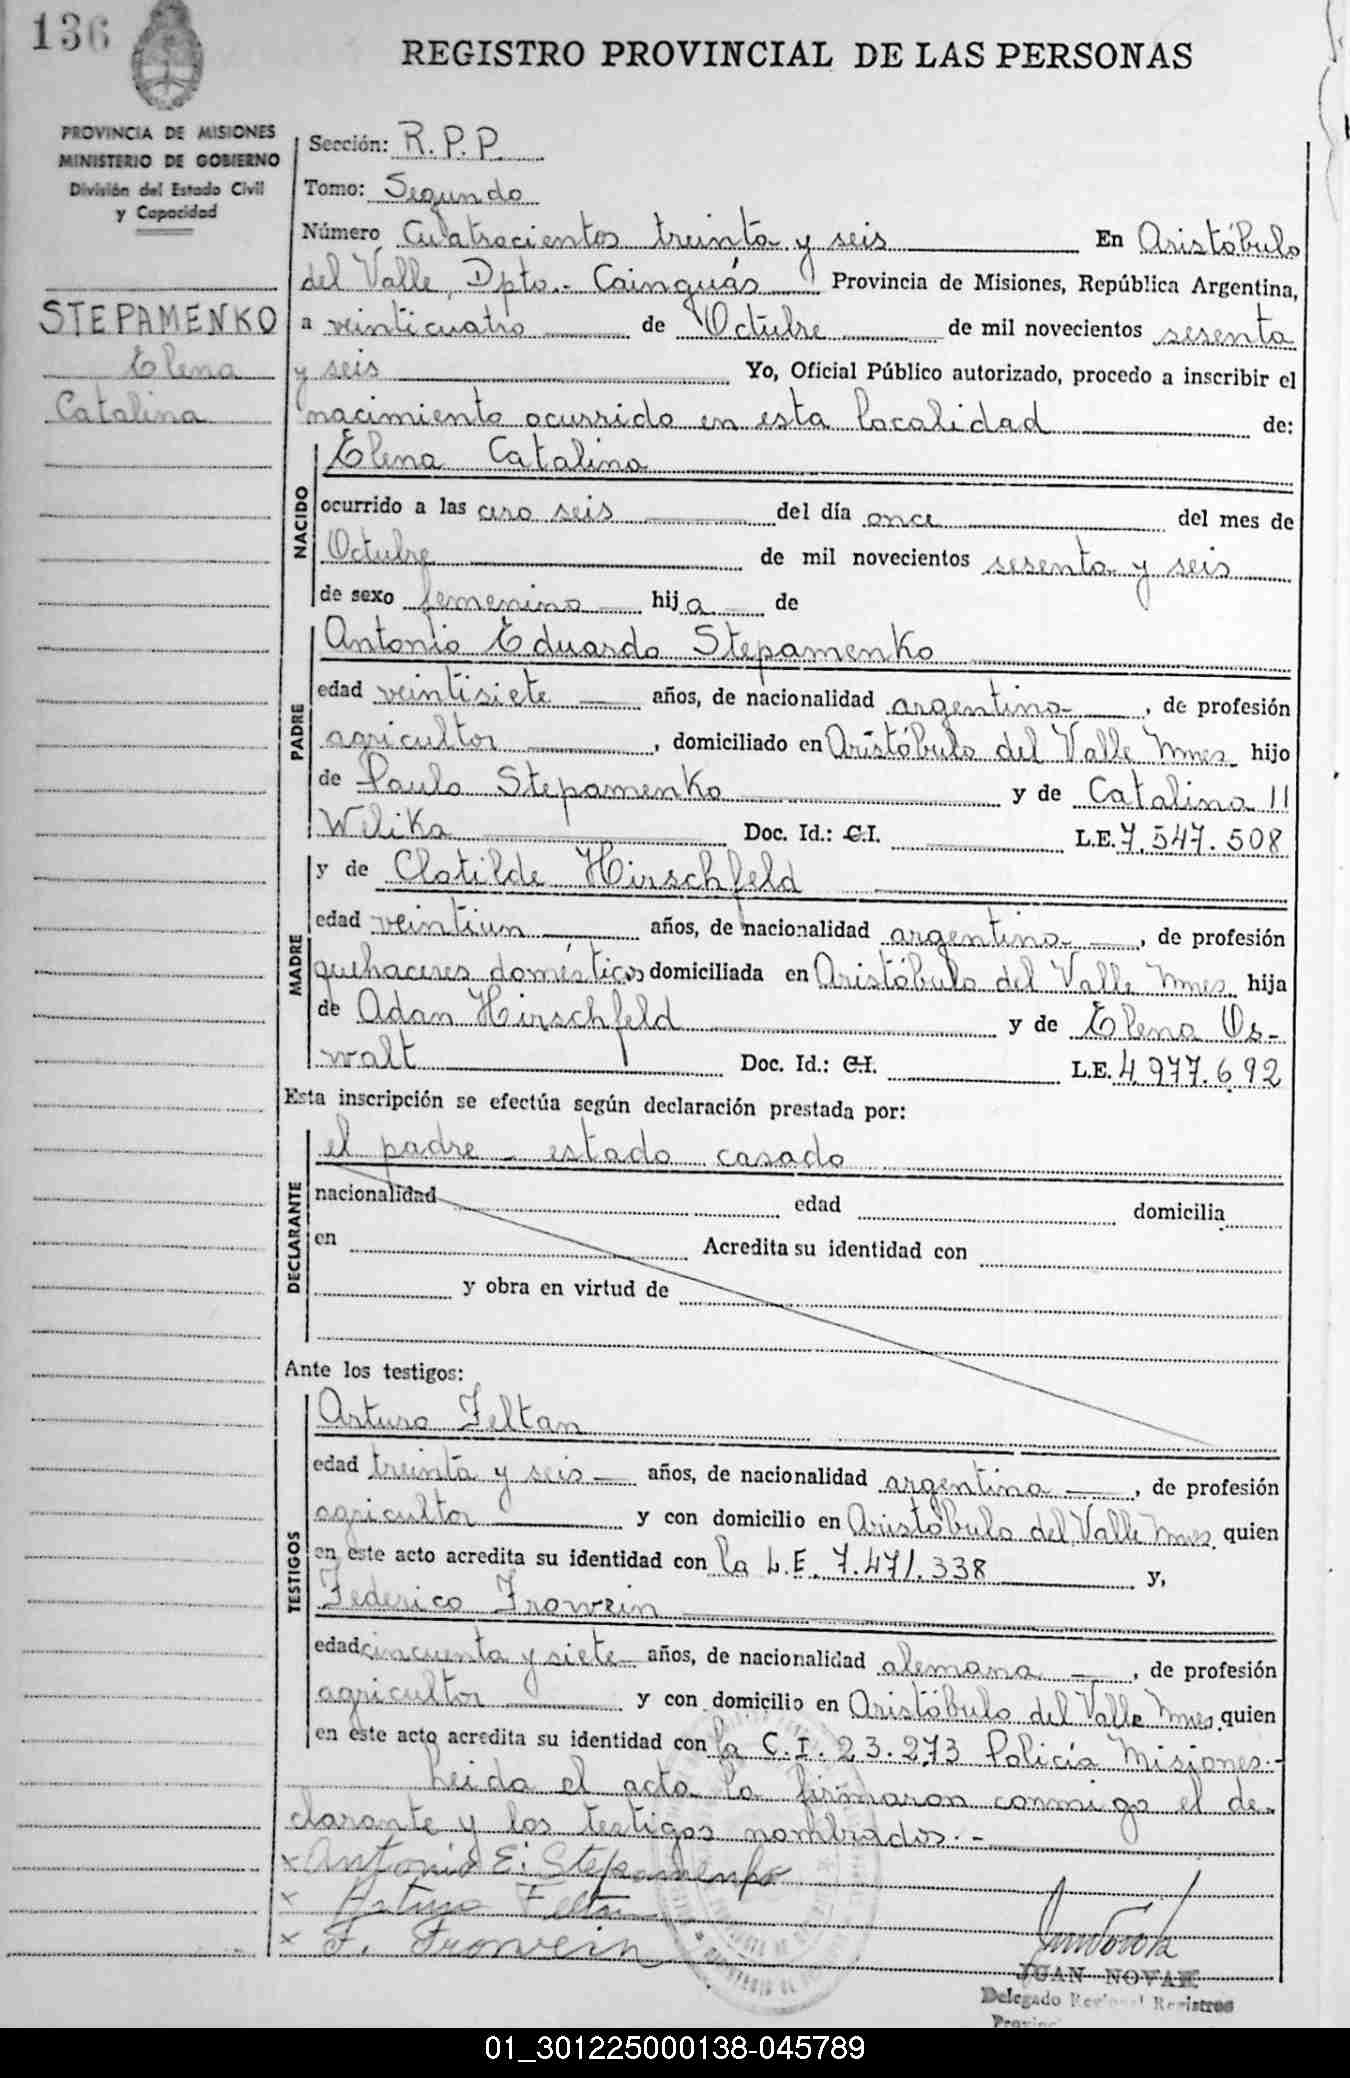 136
REGISTRO PROVINCIAL DE LAS PERSONAS
PROVINCIA DE MISIONES
MINISTERIO DE GOBIERNO
División del Estado Civil
y Capacidad
STEPAMENKO
Elena
Catalina
Sección: R.P.P.
Tomo: Segundo
Número Cuatrocientos treinta y seis En Aristóbulo
del Valle, Dpto.- Cainguás Provincia de Misiones, República Argentina,
a veinticuatro de Octubre de mil novecientos sesenta
y seis Yo, Oficial Público autorizado, procedo a inscribir el
nacimiento ocurrido en esta localidad de:
NACIDO
Elena Catalina
ocurrido a las cero seis del día once del mes de
Octubre de mil novecientos sesenta y seis
de sexo femenino hija de
PADRE
Antonio Eduardo Stepamenko
edad veintisiete años, de nacionalidad argentina, de profesión
agricultor, domiciliado en Aristóbulo del Valle Mnes. hijo
de Paulo Stepamenko y de Catalina
Welika Doc. Id.: C.I. L.E. 7.547.508
MADRE
y de Clotilde Hirschfeld
edad veintiun años, de nacionalidad argentina, de profesión
quehaceres domésticos domiciliada en Aristóbulo del Valle Mnes. hija
de Adan Hirschfeld y de Elena Os-
walt Doc. Id.: C.I. L.E. 4.977.692
Esta inscripción se efectúa según declaración prestada por:
DECLARANTE
el padre - estado casado
nacionalidad edad domicilia
en Acredita su identidad con
y obra en virtud de
Ante los testigos:
TESTIGOS
Arturo Feltan
edad treinta y seis años, de nacionalidad argentina, de profesión
agricultor y con domicilio en Aristóbulo del Valle Mnes. quien
en este acto acredita su identidad con la L.E. 7.471.338 y,
Federico Frowein
edad cincuenta y siete años, de nacionalidad alemana, de profesión
agricultor y con domicilio en Aristóbulo del Valle Mnes. quien
en este acto acredita su identidad con la C.I. 23.273 Policía Misiones.-
Leida el acta la firmaron conmigo el de-
clarante y los testigos nombrados.-
x Antonio E. Stepamenko
x Arturo Feltan
x F. Frowein
JUAN NOVAK
Delegado Regional Registros
01_301225000138-045789